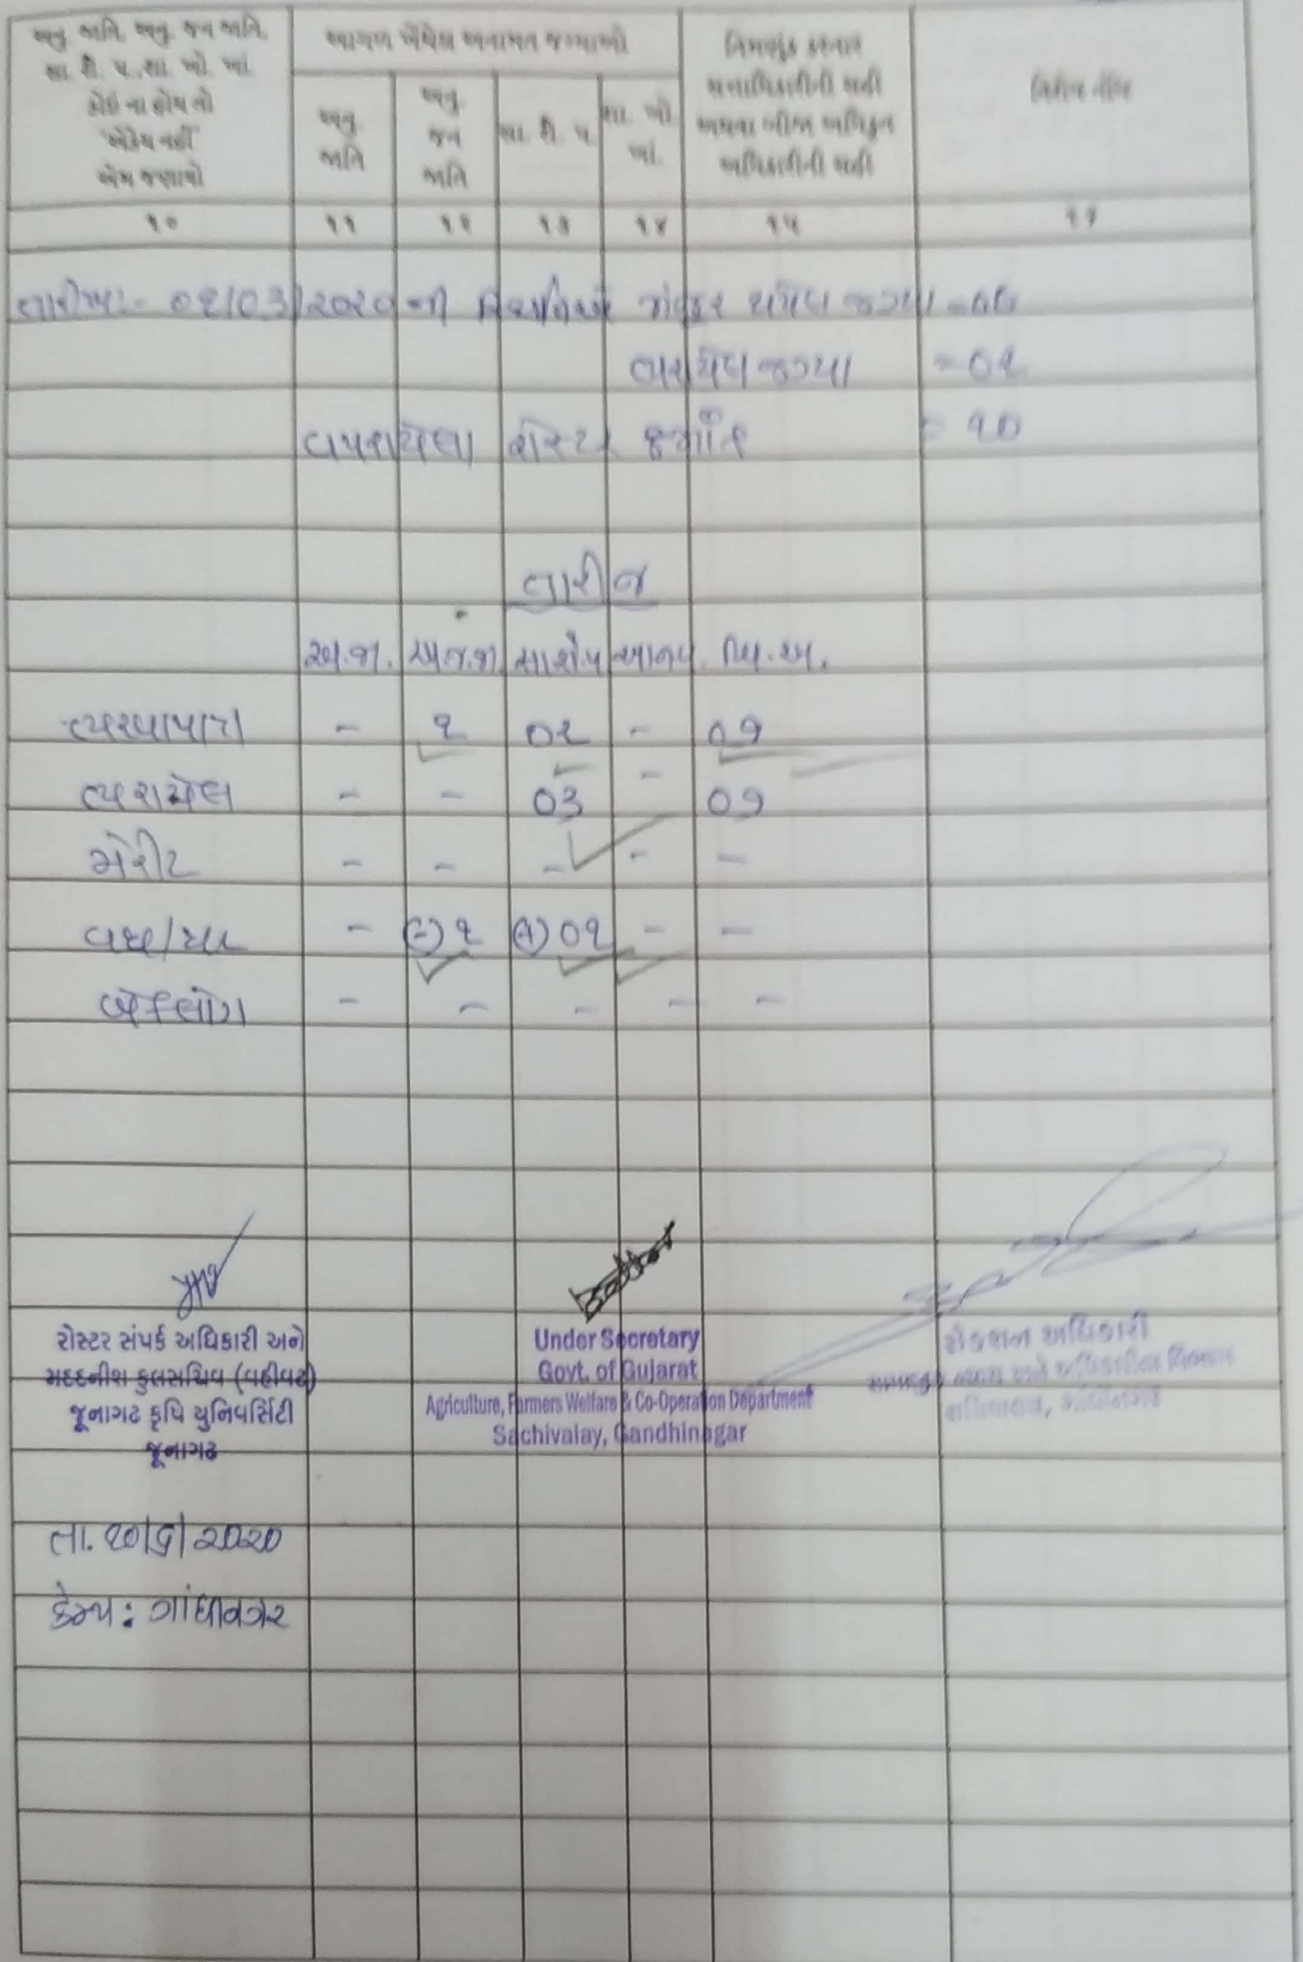 અનુ. જાતિ, અનુ. જન જાતિ,
સા. શૈ. પ., સા. ઓ. આં.
કોઈ ના હોય તો
"એકેય નહીં"
એમ જણાવો
આગળ ખેંચેલ અનામત જગ્યાઓ
અનુ. જાતિ
અનુ. જન જાતિ
સા. શૈ. પ.
સા. ઓ. આં.
નિમણૂંક કરનાર
સત્તાધિકારીની સહી
અથવા બીજા અધિકૃત
અધિકારીની સહી
વિશેષ નોંધ
૧૦ ૧૧ ૧૨ ૧૩ ૧૪ ૧૫ ૧૬
તારીખ:- ૦૧/૦૩/૨૦૨૦ ની સ્થિતિએ મંજુર થયેલ જગ્યા
ભરાયેલ જગ્યા
વપરાયેલા રોસ્ટર ક્રમાંક = ૧૦
તારીજ
અ.જા. અ.જ.જા. સાશૈપ આનવ બિ.અ.
ભરવાપાત્ર - ૧ ૦૨ -
ભરાયેલ - - ૦૩ -
મેરીટ - - - - -
વધ/ઘટ - (-) ૧ (+) ૦૧ - -
બેકલોગ - - - - -
રોસ્ટર સંપર્ક અધિકારી અને
મદદનીશ કુલસચિવ (વહીવટ)
જૂનાગઢ કૃષિ યુનિવર્સિટી
જૂનાગઢ
Under Secretary
Govt. of Gujarat
Agriculture, Farmers Welfare & Co-Operation Department
Sachivalay, Gandhinagar
સેક્શન અધિકારી
સામાજીક ન્યાય અને અધિકારીતા વિભાગ
સચિવાલય, ગાંધીનગર
તા. ૧૦/૬/૨૦૨૦
કેમ્પ : ગાંધીનગર